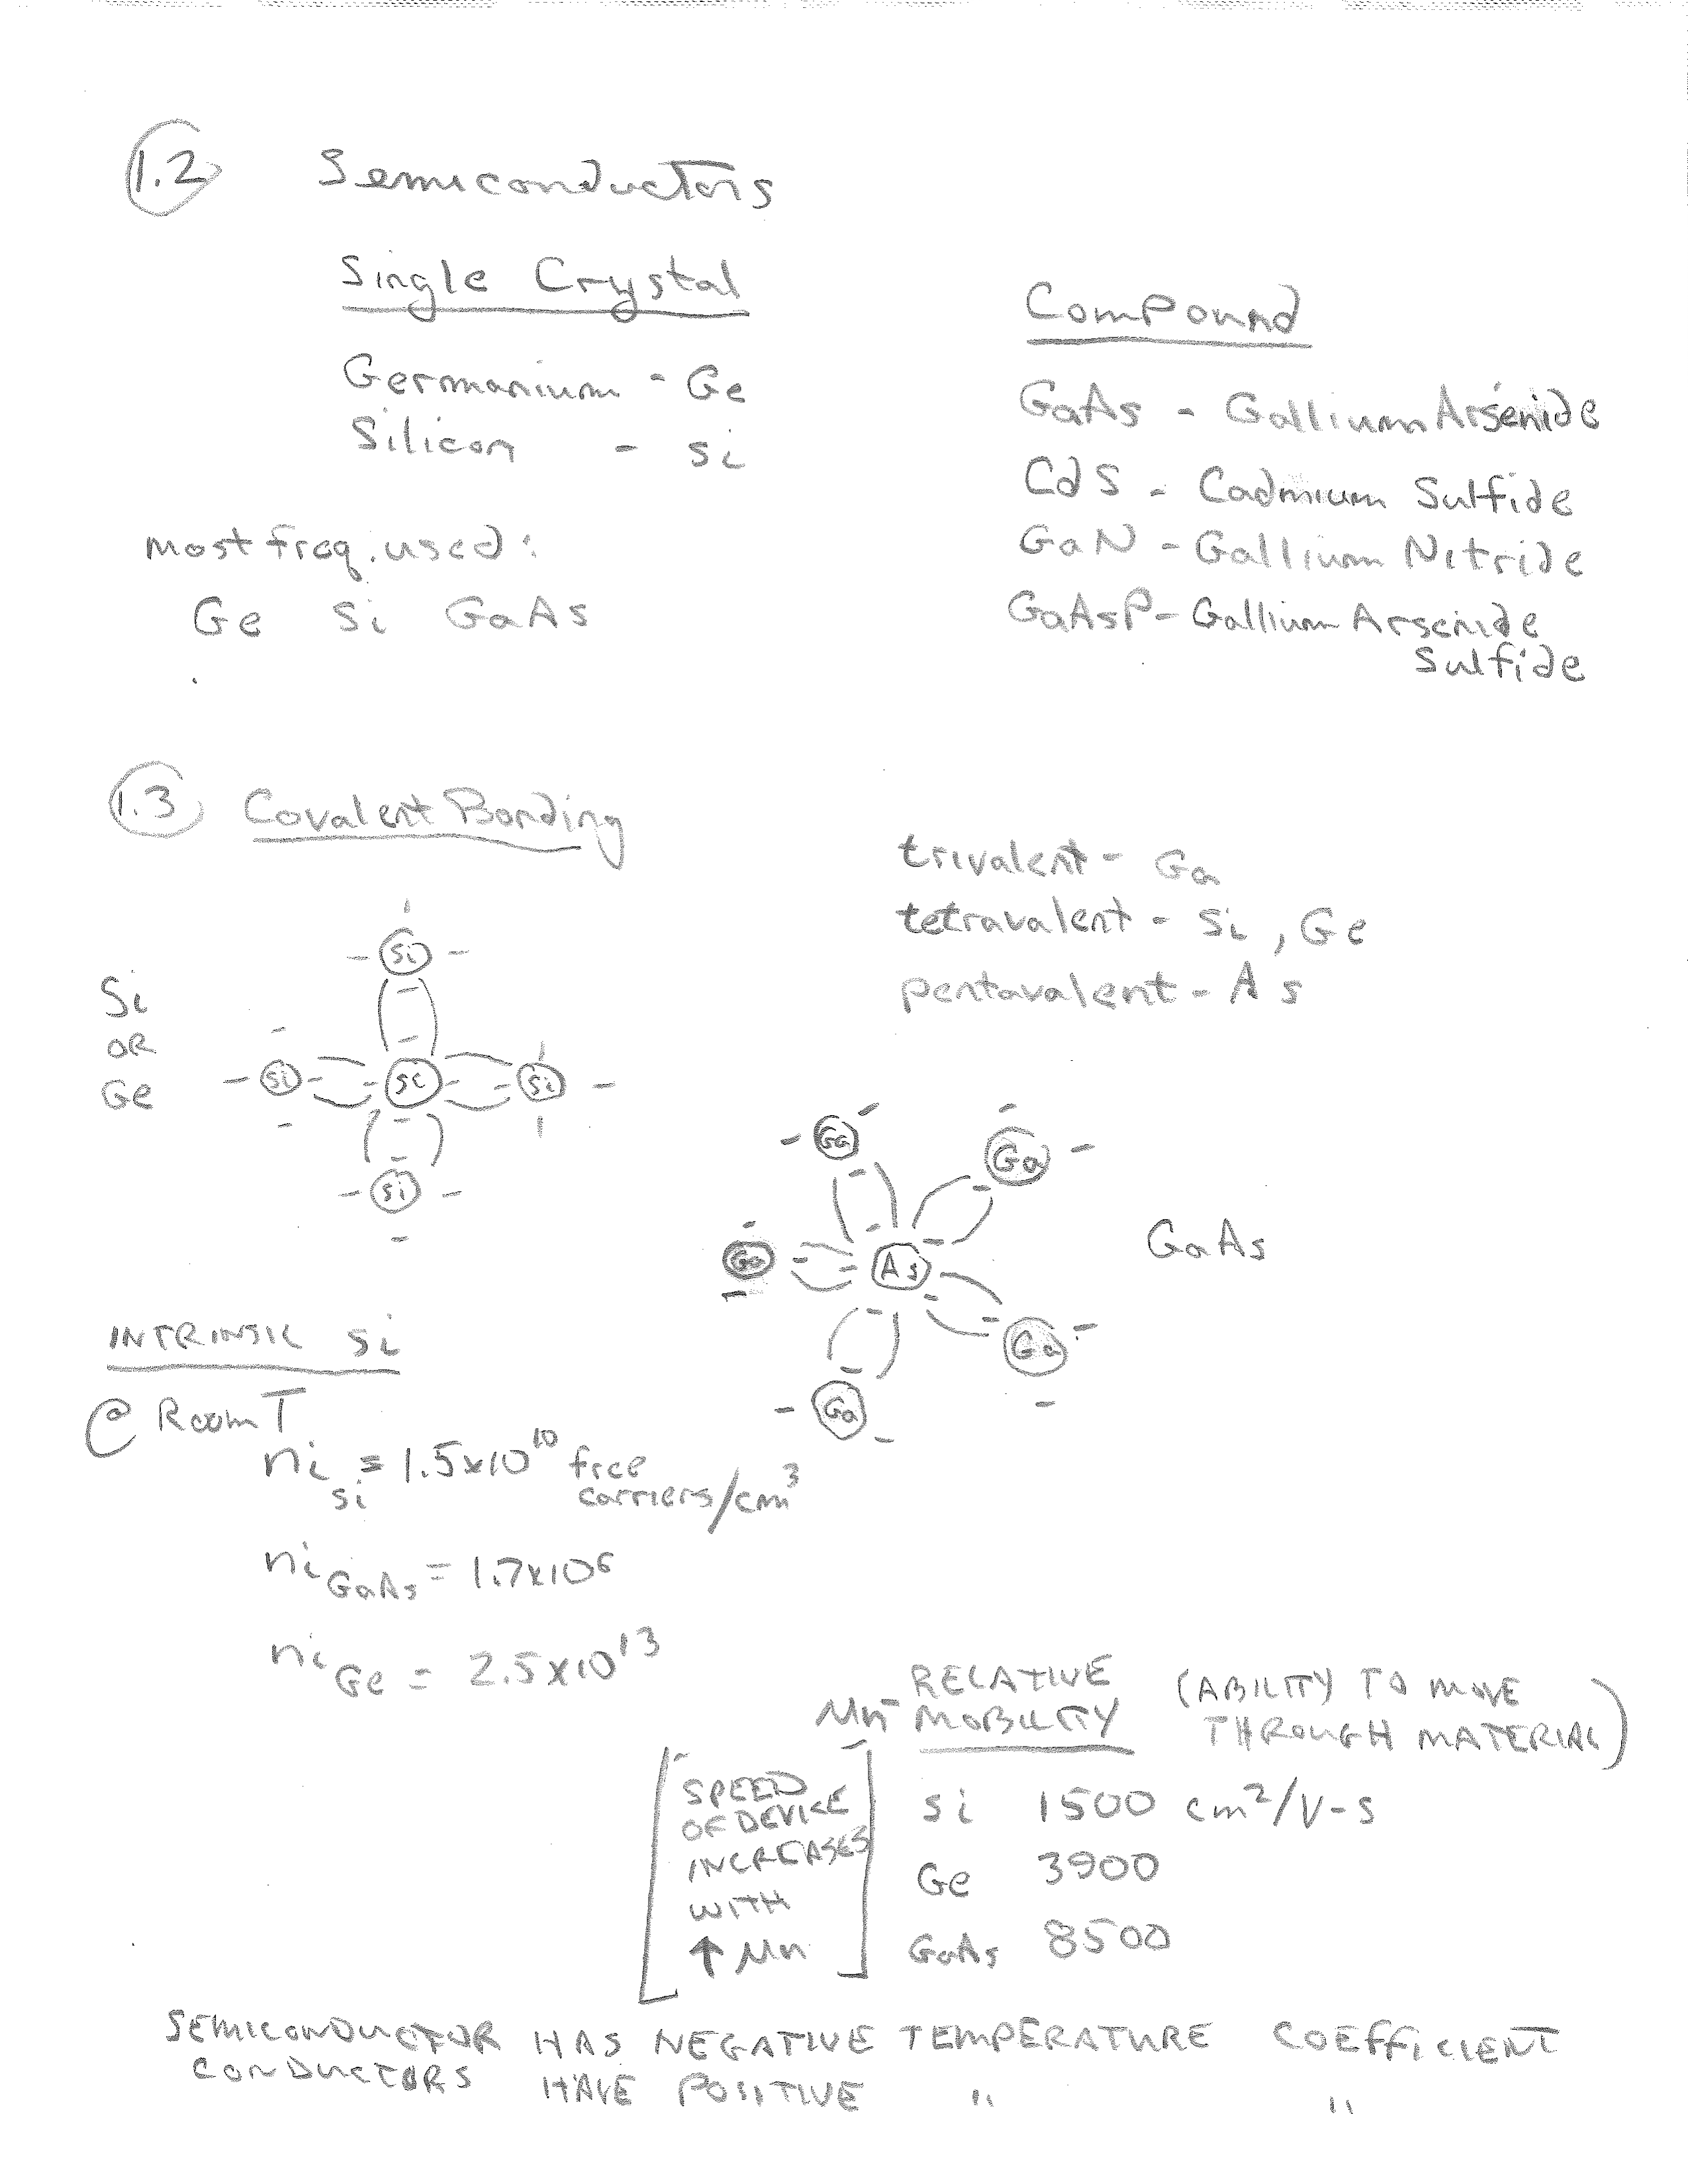 1.2 Semiconductors
Single Crystal
Germanium - Ge
Silicon - Si
most freq. used:
Ge Si GaAs
Compound
GaAs - Gallium Arsenide
CdS - Cadmium Sulfide
GaN - Gallium Nitride
GaAsP - Gallium Arsenide
Sulfide
1.3 Covalent Bonding
trivalent - Ga
tetravalent - Si, Ge
pentavalent - As
Si
OR
Ge
Si
Si Si Si
Si
Ga Ga
Ga As
Ga
Ga
GaAs
INTRINSIC Si
@ Room T
ni Si = 1.5x10^10 free
carriers/cm^3
ni GaAs = 1.7x10^6
ni Ge = 2.5x10^13
μn - RELATIVE
MOBILITY
(ABILITY TO MOVE
THROUGH MATERIAL)
[SPEED
OF DEVICE
INCREASES
WITH
↑ μn]
Si 1500 cm²/V-S
Ge 3900
GaAs 8500
SEMICONDUCTOR HAS NEGATIVE TEMPERATURE COEFFICIENT
CONDUCTORS HAVE POSITIVE " "